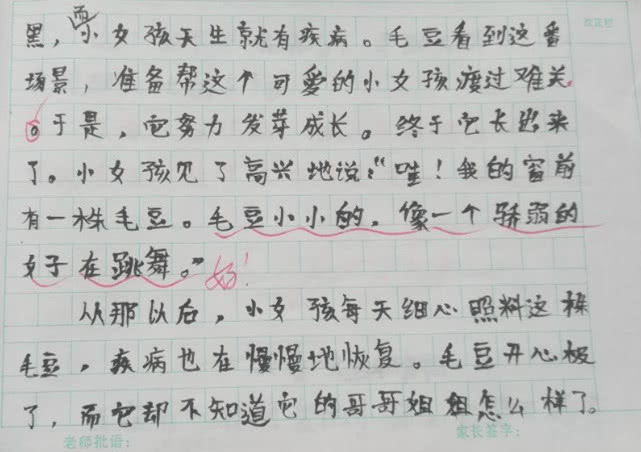 改正栏
而
黑，小女孩天生就有疾病。毛豆看到这番
场景，准备帮这个可爱的小女孩渡过难关
。于是，它努力发芽成长。终于它长出来
了。小女孩见了高兴地说：“哇！我的窗前
有一株毛豆。毛豆小小的，像一个骄弱的
女子在跳舞。”好！
从那以后，小女孩每天细心照料这株
毛豆，疾病也在慢慢地恢复。毛豆开心极
了，而它却不知道它的哥哥姐姐怎么样了。
老师批语： 家长签字：